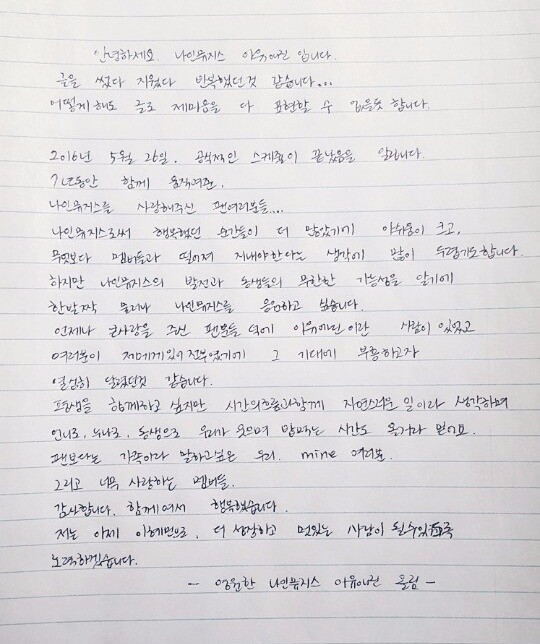 안녕하세요. 나인뮤지스 이유애린 입니다.
글을 썼다 지웠다 반복했던것 같습니다...
어떻게해도 글로 제마음을 다 표현할 수 없을듯 합니다.
2016년 5월 26일. 공식적인 스케줄이 끝났음을 알립니다.
7년동안 함께 움직여준,
나인뮤지스를 사랑해주신 팬여러분들...
나인뮤지스로써 행복했던 순간들이 더 많았기에 아쉬움이 크고,
무엇보다 멤버들과 떨어져 지내야한다는 생각에 많이 두렵기도합니다.
하지만 나인뮤지스의 발전과 동생들의 무한한 가능성을 알기에
한발짝 물러나 나인뮤지스를 응원하고 싶습니다.
언제나 큰사랑을 주신 팬분들 덕에 이유애린이란 사람이 있었고
여러분이 저에게있어 전부였기에 그 기대에 부응하고자
열심히 달렸던것 같습니다.
평생을 함께하고 싶지만 시간의흐름과함께 자연스러운 일이라 생각하며
언니로, 누나로, 동생으로 우리가 웃으며 마주하는 시간도 올거라 믿어요.
팬보다는 가족이라 말하고싶은 우리. mine 여러분.
그리고 너무 사랑하는 멤버들.
감사합니다. 함께여서 행복했습니다.
저는 이제 이혜민으로, 더 성장하고 멋있는 사람이 될수있도록
노력하겠습니다.
- 영원한 나인뮤지스 이유애린 올림 -